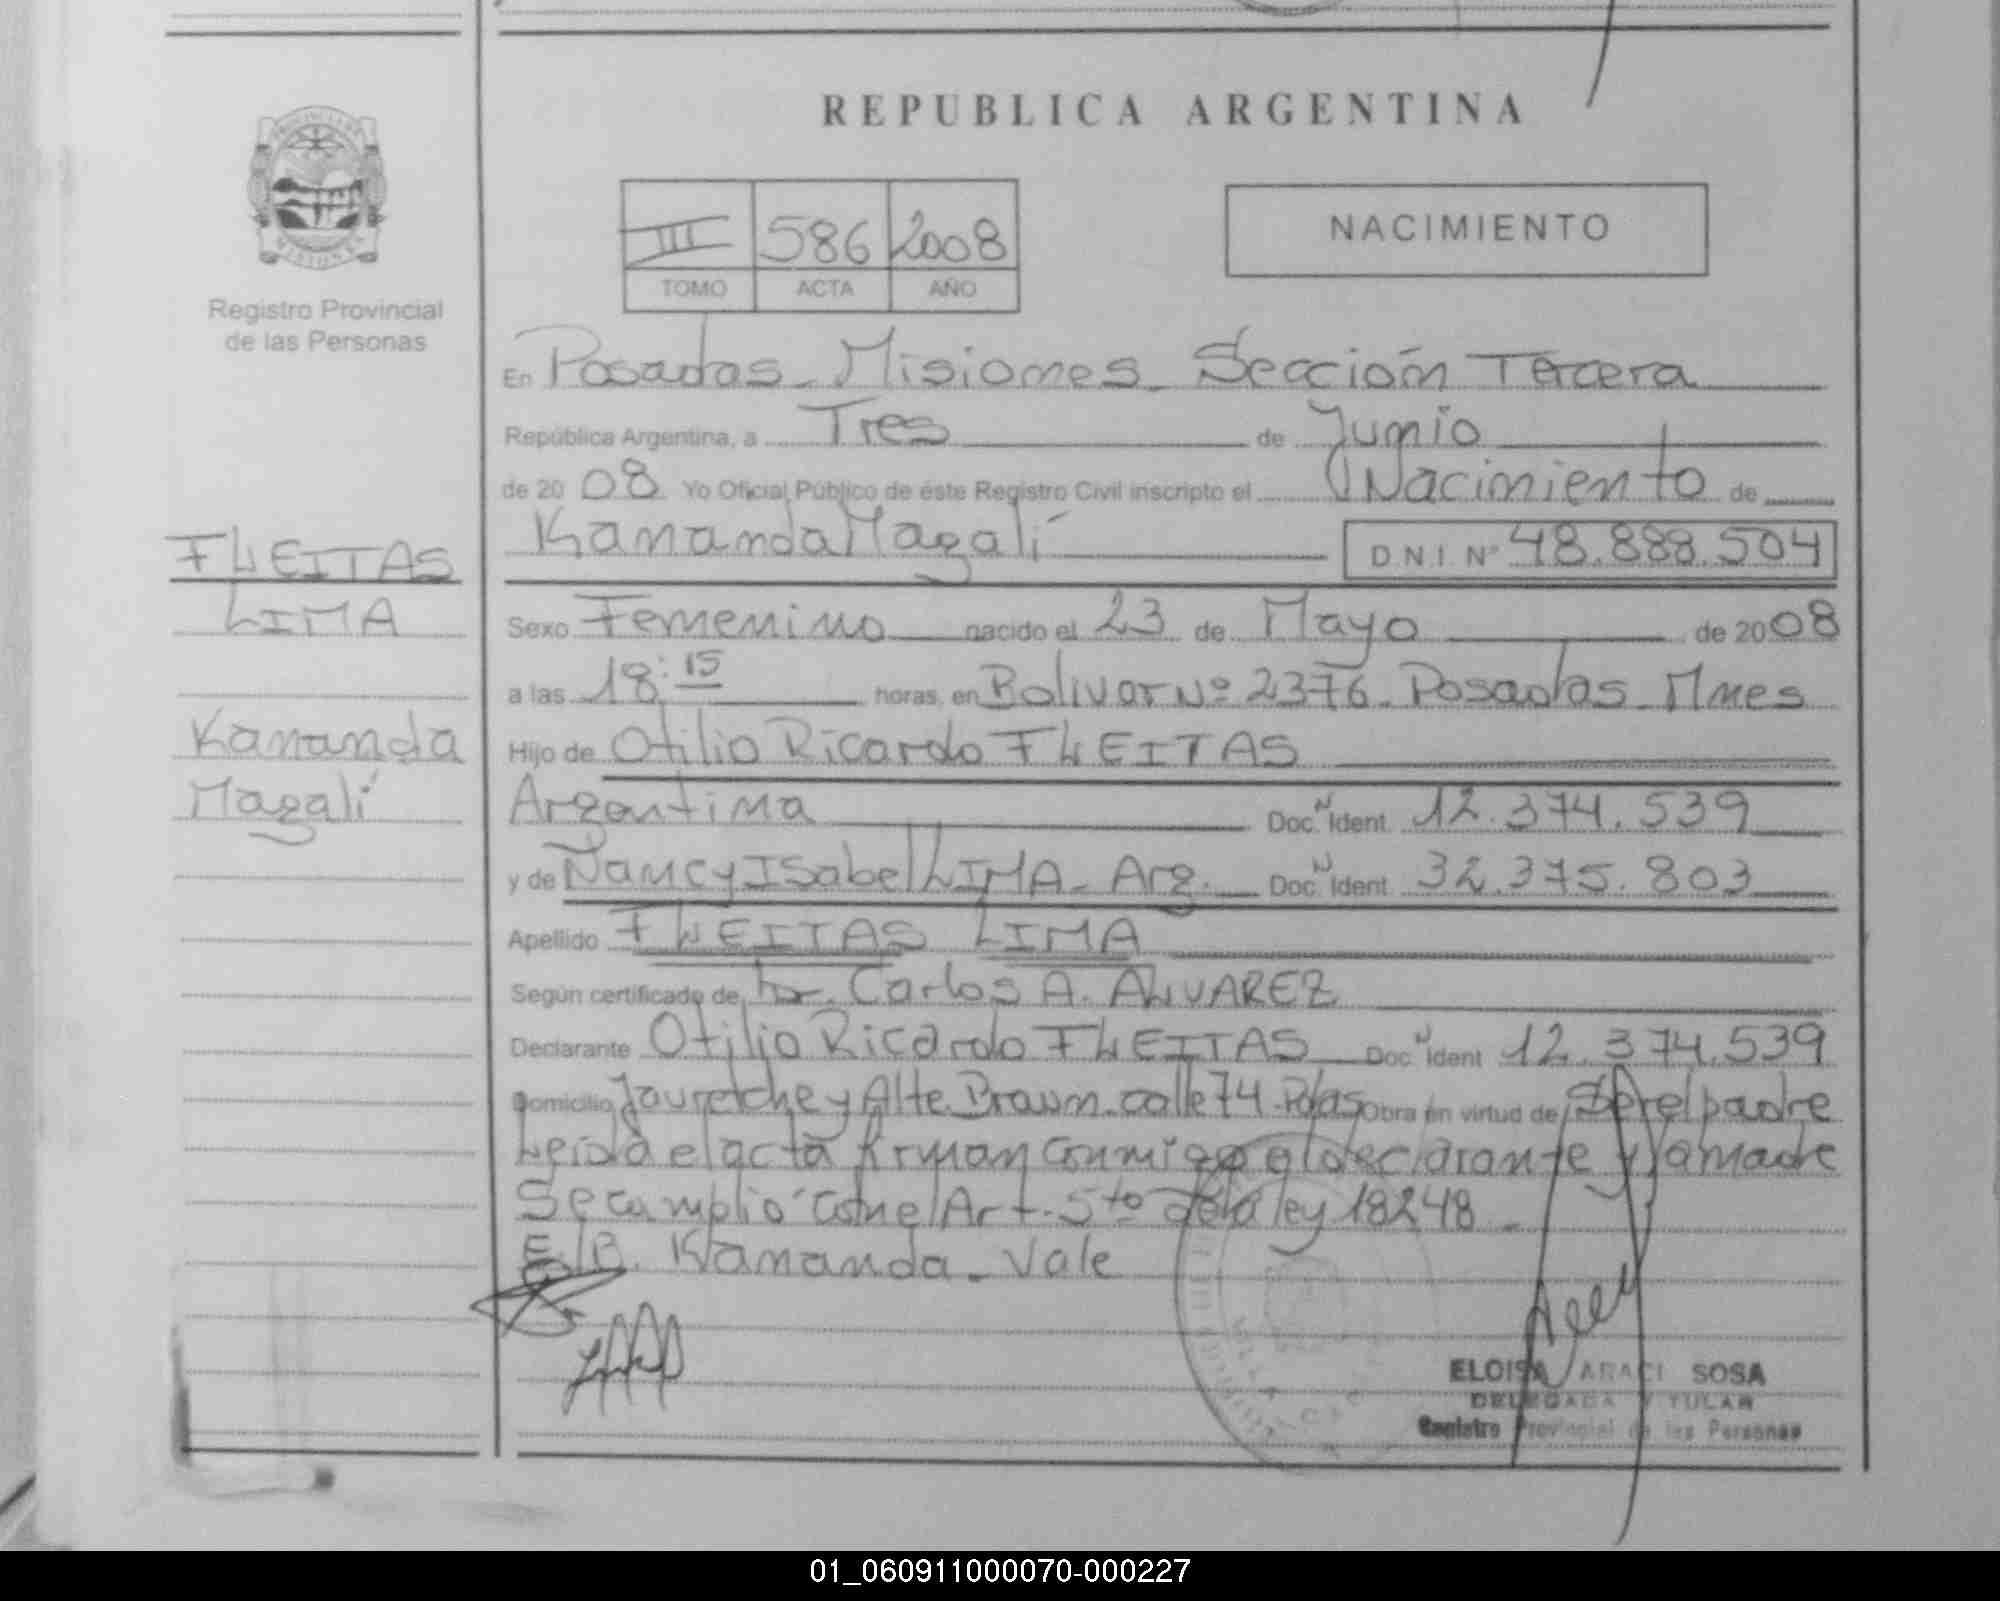 REPUBLICA ARGENTINA
III 586 2008
TOMO ACTA AÑO
NACIMIENTO
Registro Provincial
de las Personas
FLEITAS
LIMA
Kananda
Magalí
En Posadas - Misiones - Sección Tercera
República Argentina, a Tres de Junio
de 2008 Yo Oficial Público de éste Registro Civil inscripto el Nacimiento de
Kananda Magalí D.N.I. Nº 48.888.504
Sexo Femenino nacido el 23 de Mayo de 2008
a las 18:15 horas, en Bolivar Nº 2376 - Posadas - Mnes
Hijo de Otilio Ricardo FLEITAS
Argentina Doc. N Ident. 12.374.539
y de Nancy Isabel LIMA - Arg. Doc. N Ident. 32.375.803
Apellido FLEITAS LIMA
Según certificado de Dr. Carlos A. ALVAREZ
Declarante Otilio Ricardo FLEITAS Doc N Ident 12.374.539
Domicilio Jauretche y Alte. Brown - calle 74 - Pdas Obra en virtud de Ser el padre
Leída el acta firman conmigo el declarante y la madre
Se cumplio con el Art. 5to de la ley 18248 -
E/B. Kananda - Vale
ELOISA ARACI SOSA
DELEGADA TITULAR
Registro Provincial de las Personas
01_060911000070-000227